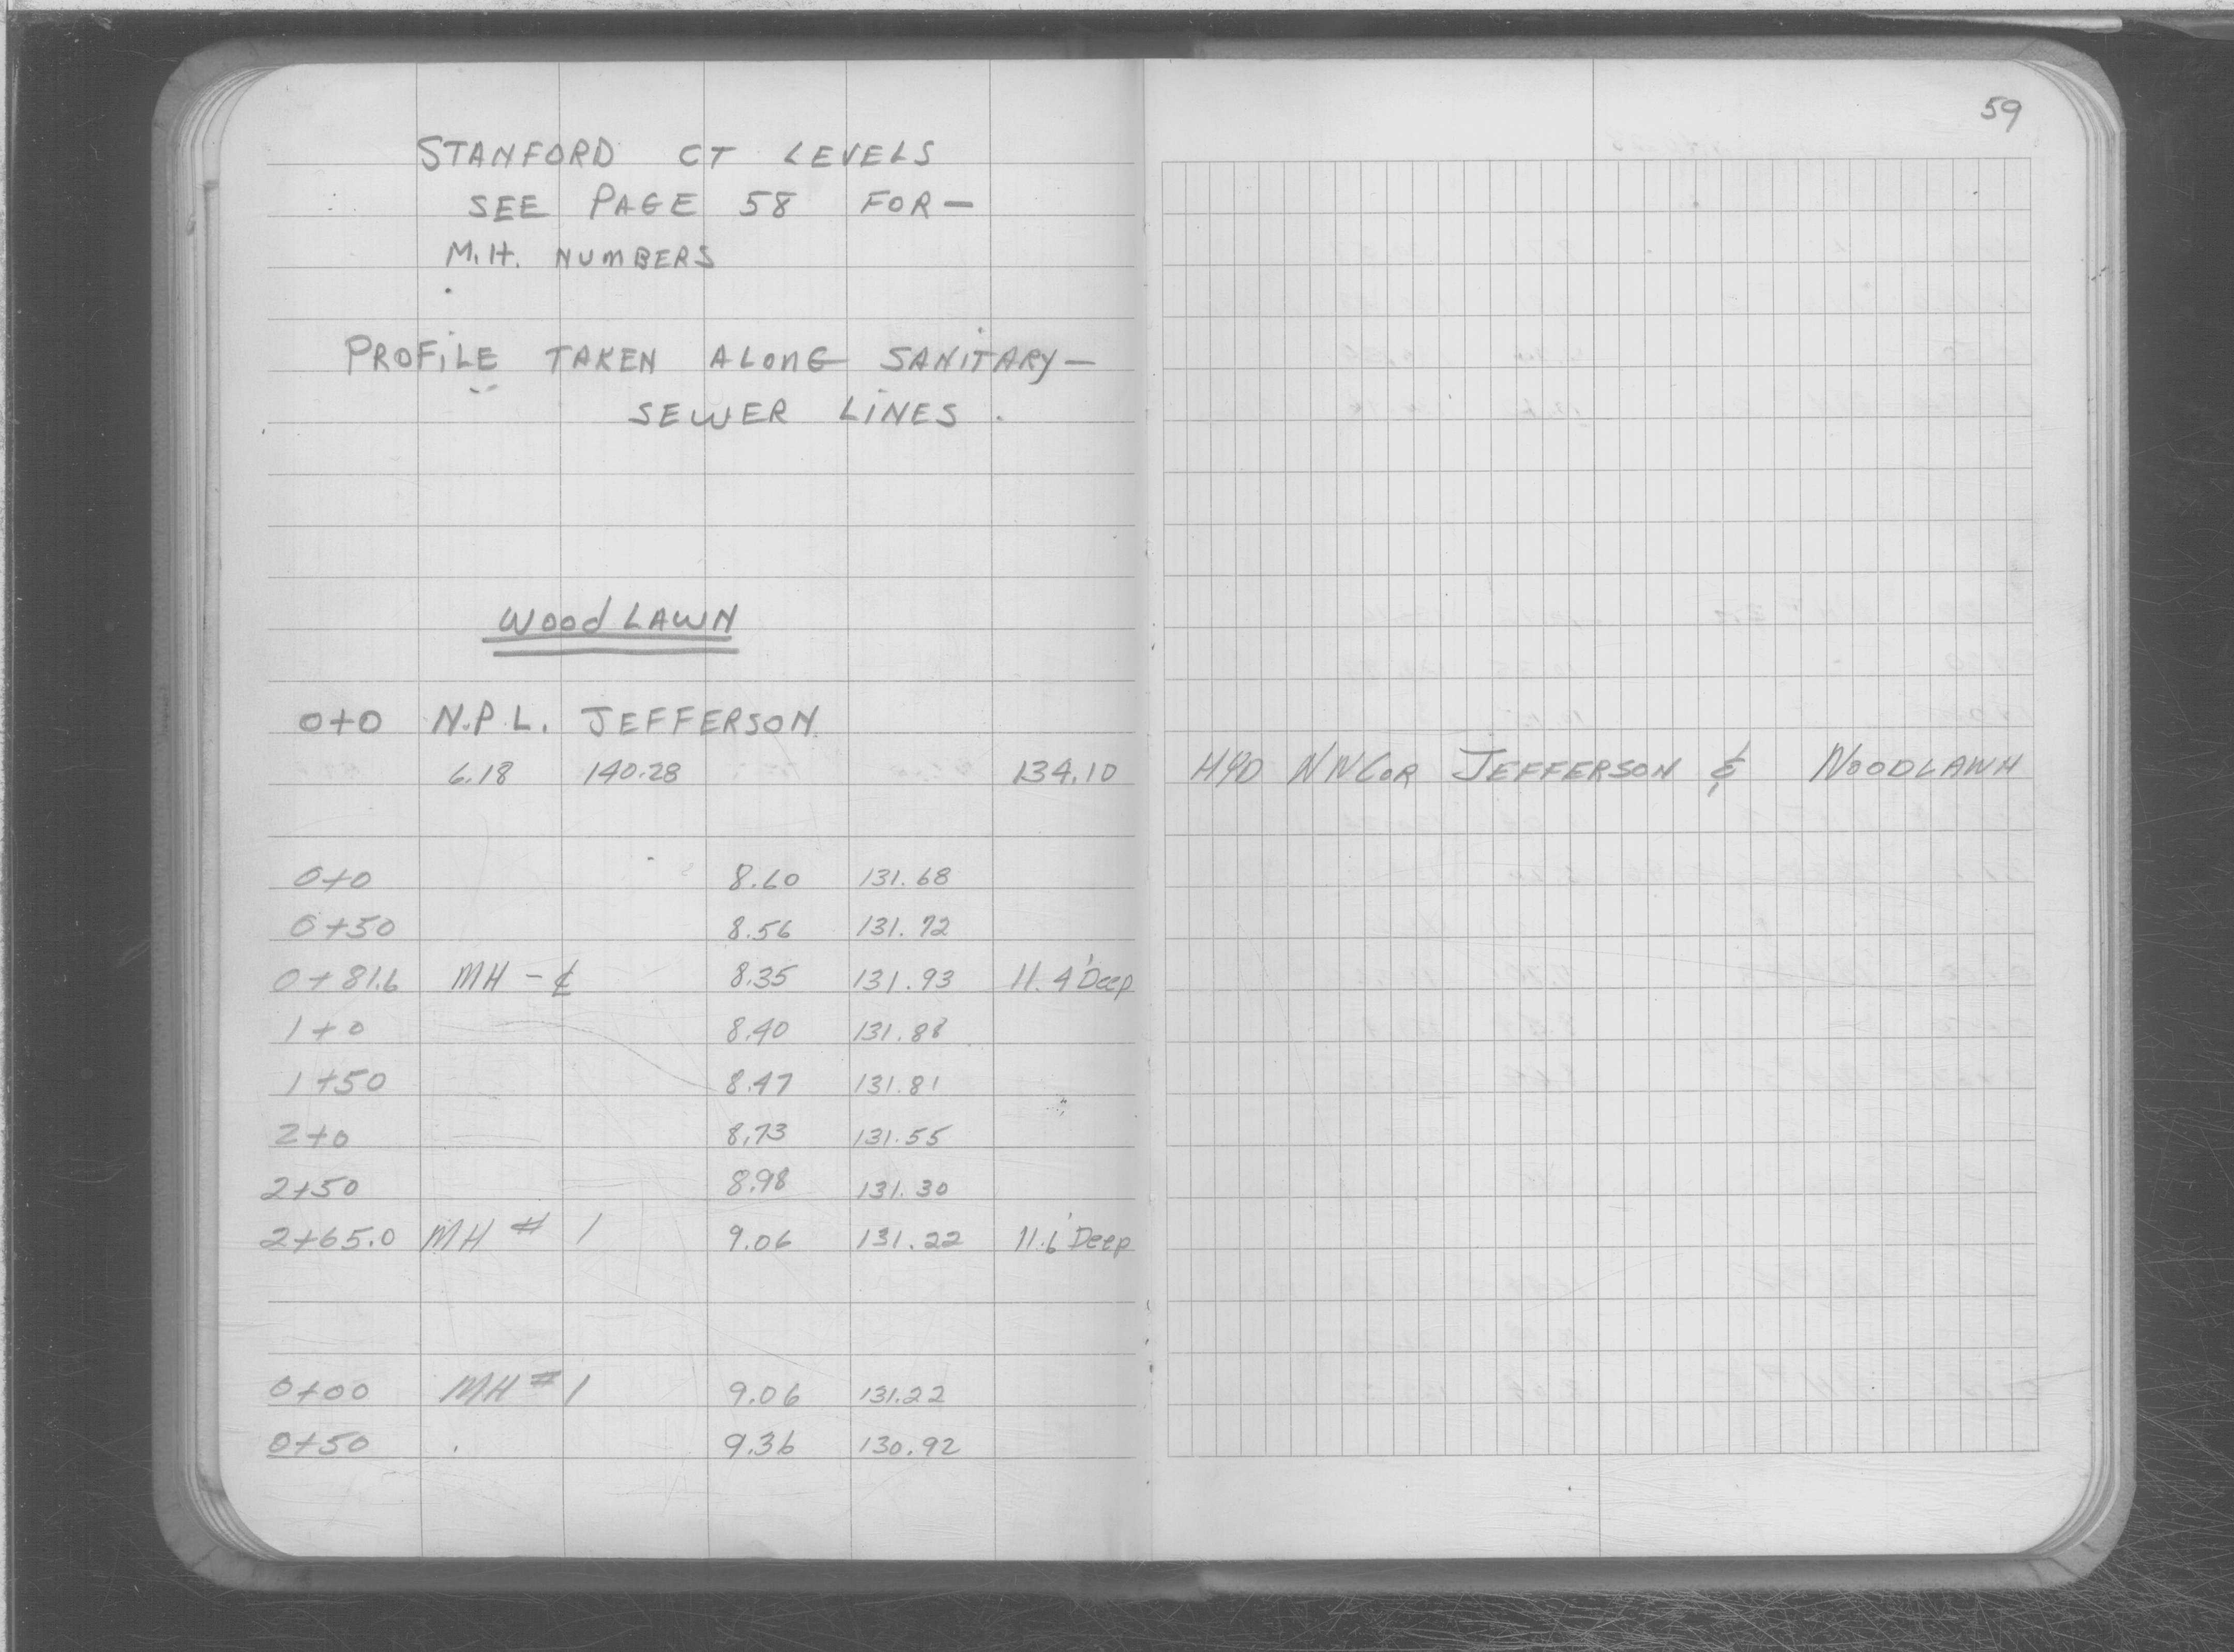 59
STANFORD CT LEVELS
SEE PAGE 58 FOR—
M.H. NUMBERS
PROFILE TAKEN ALONG SANITARY—
SEWER LINES.
WoodLAWN
0+0 N.P.L. JEFFERSON.
6.18 140.28 134.10 HYD NW COR JEFFERSON & WOODLAWN
0+0 8.60 131.68
0+50 8.56 131.72
0+81.6 MH - ℄ 8.35 131.93 11.4' Deep
1+0 8.40 131.88
1+50 8.47 131.81
2+0 8.73 131.55
2+50 8.98 131.30
2+65.0 MH # 1 9.06 131.22 11.6' Deep
0+00 MH #1 9.06 131.22
0+50 9.36 130.92